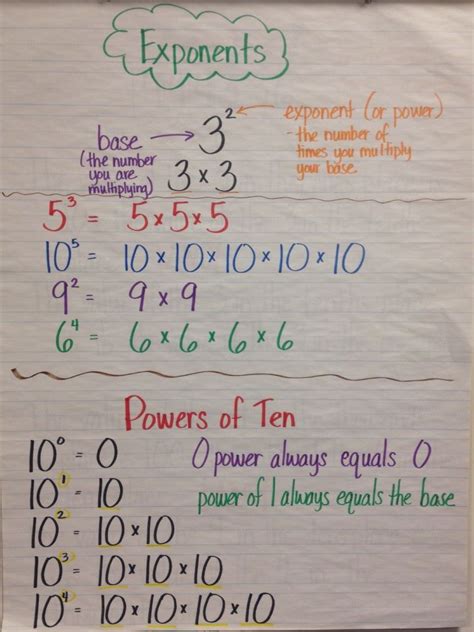 Exponents
3² ← exponent (or power)
base → - the number of
(the number times you multiply
you are your base.
multiplying) 3 × 3
5³ = 5 × 5 × 5
10⁵ = 10 × 10 × 10 × 10 × 10
9² = 9 × 9
6⁴ = 6 × 6 × 6 × 6
Powers of Ten
10⁰ = 0 0 power always equals 0
10¹ = 10 power of 1 always equals the base
10² = 10 × 10
10³ = 10 × 10 × 10
10⁴ = 10 × 10 × 10 × 10